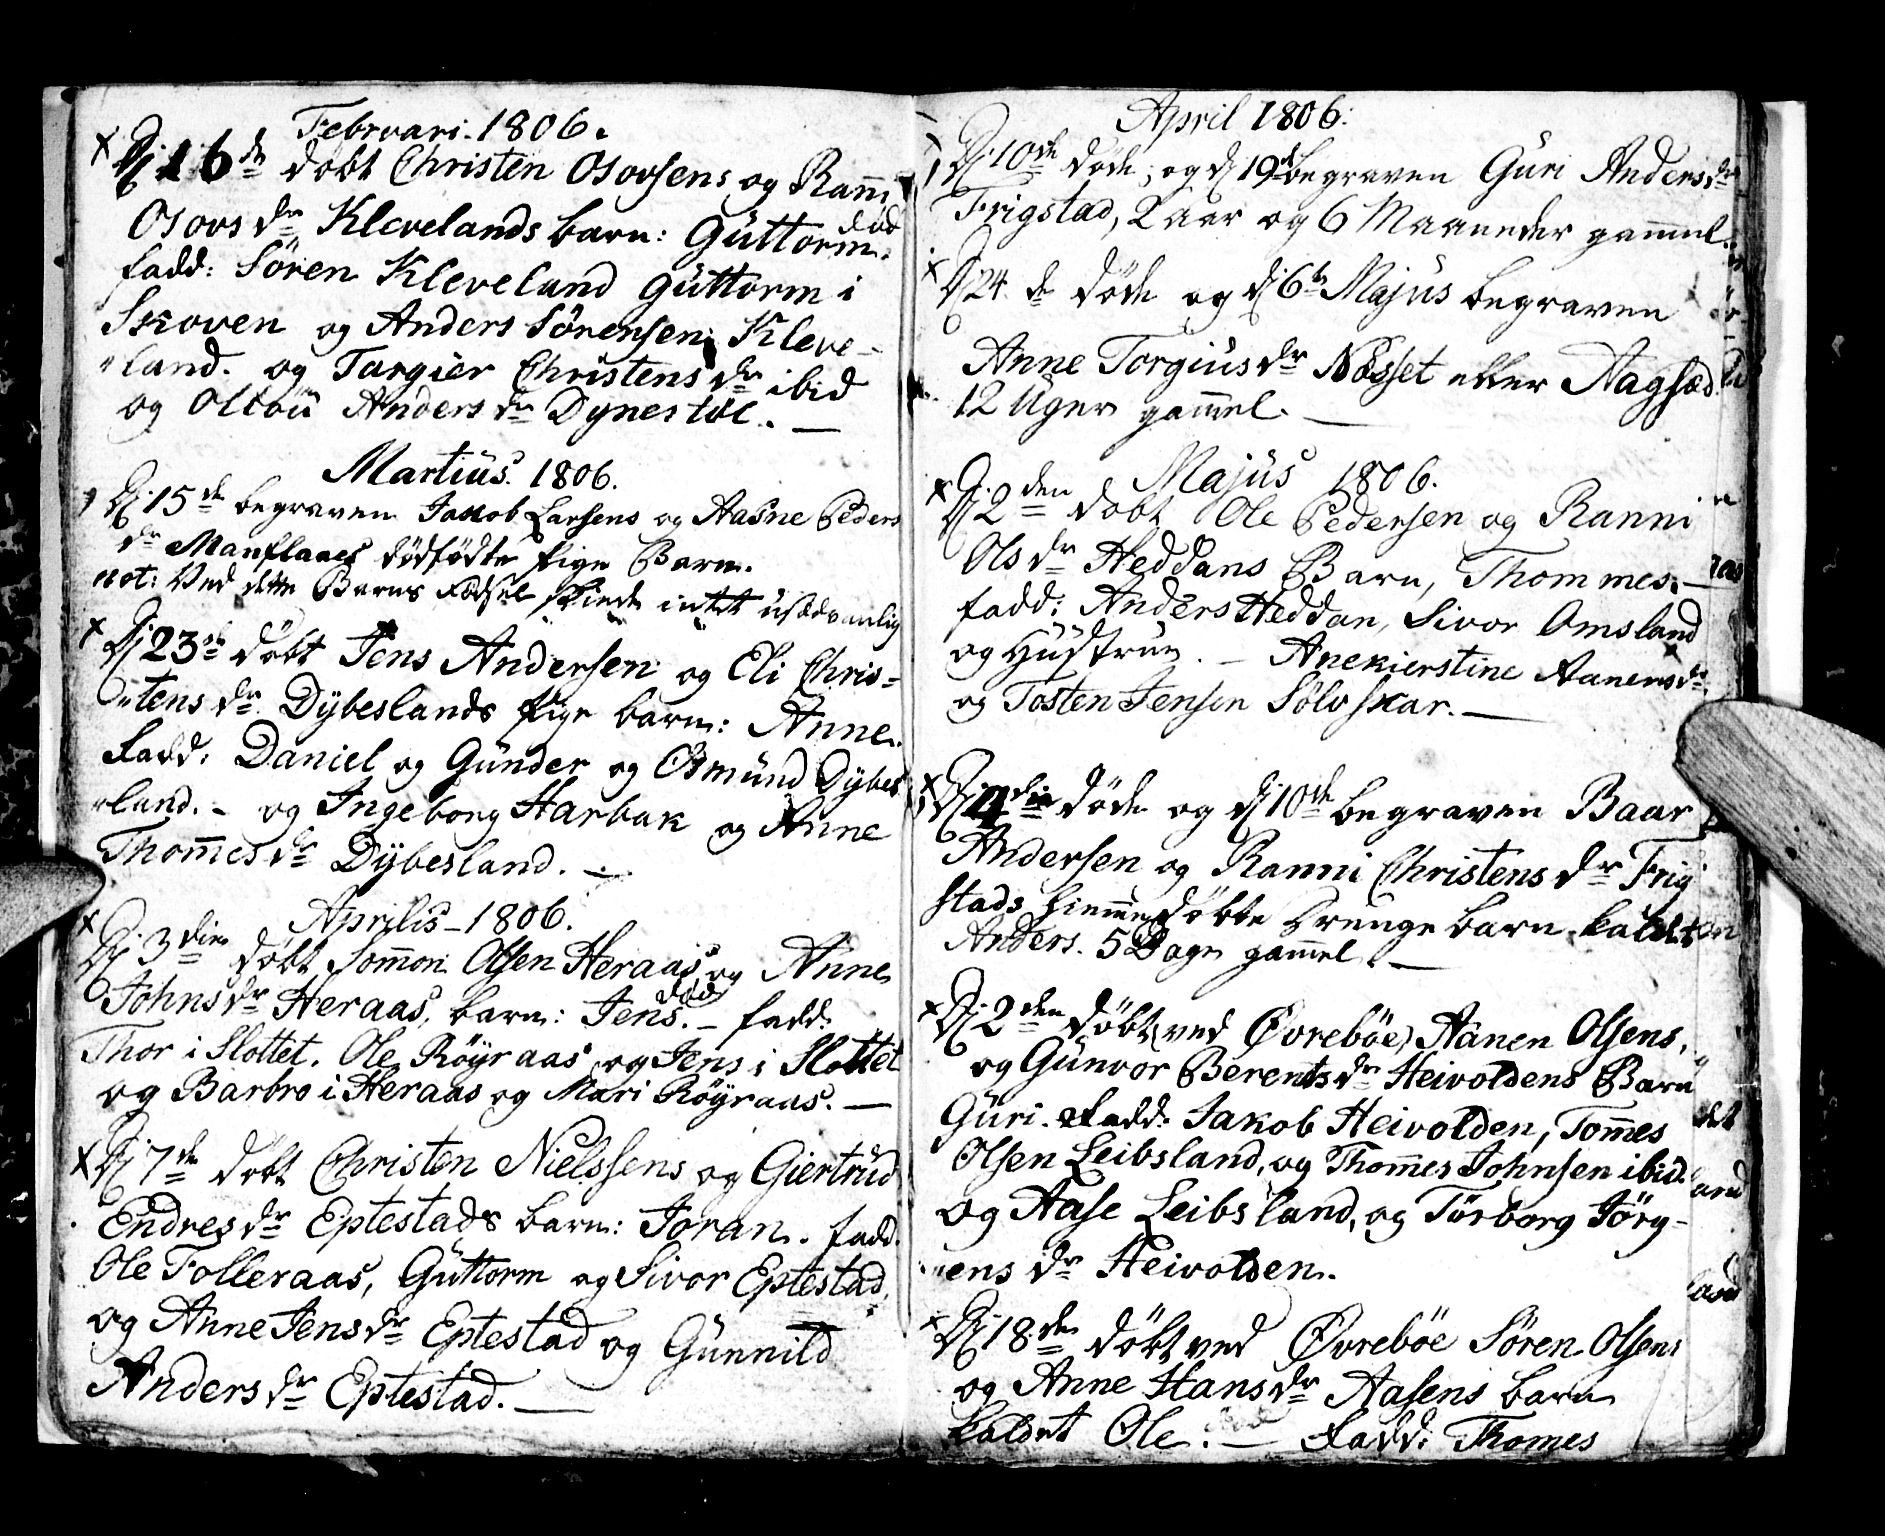 Februari. 1806.
D. 16de døbt Christen Osovsens og Ranni
Osovs dr Klevelands barn: Guttorm. død
fadd: Sören Kleveland Guttorm i
Skoven og Anders Sörensen Kleve-
land. og Targier Christens dr ibid
og Ollou Anders dr Dynestöl. —
Martius. 1806.
D. 15de begraven Jakob Larsens og Aasne Peders
dr Manflaaes dödfödte Pige Barn.
not: Ved dette Barns Födsel skiede intet usædvanlig
D. 23de döbt Jens Andersen og Eli Chris-
tens dr Dybeslands Pige barn: Anne.
Fadd: Daniel og Gunder og Osmund Dybes
land. - og Ingeborg Harbak og Anne
Thom̅es dr Dybesland. —
Aprilis - 1806.
D. 3die döbt Som̅on Olsen Heraas og Anne
Johns dr Heraas, barn: Jens. død - fadd:
Thor i Slottet. Ole Röyraas og Jens i Slottet
og Barbro i Heraas og Mari Röyraas. —
D. 7de döbt Christen Nielssens og Giertrud
Endres dr Eptestads barn: Joran. fadd.
Ole Folleraas, Guttorm og Sivor Eptestad,
og Anne Jens dr Eptestad og Gunnild
Anders dr Eptestad. —
April 1806:
D. 10de döde, og d. 19de begraven Guri Anders dr
Frigstad, 2 aar og 6 Maaneder gam̅el.
D. 24de döde og d. 6te Majus begraven
Anne Torgius dr Nösset eller Aagsæd
12 Uger gam̅el. —
Majus 1806.
D. 2den döbt Ole Pedersen og Ranni
Ols dr Heddans Barn, Thommes. —
fadd: Anders Heddan, Sivor Omsland
og Hustrue. - Anekierstine Aanens dr
og Tosten Jensen Sölvskar. —
D. 4die döde og d. 10de begraven Baar
Andersen og Ranni Christens dr Frig
stads hiem̅edöbte Drenge barn kaldet
Anders. 5 Dage gam̅el. —
D. 2den döbt (ved Øvreböe) Aanen Olsens,
og Gunvor Berents dr Heivoldens Barn
Guri. Fadd: Jakob Heivolden, Tom̅es
Olsen Leibsland, og Thom̅es Johnsen ibid.
og Aase Leibsland, og Torborg Jörg-
ens dr Heivolden.
D. 18de döbt ved Øvreböe Sören Olsens
og Anne Hans dr Aasens barn
kaldet Ole. — Fadd: Thomes